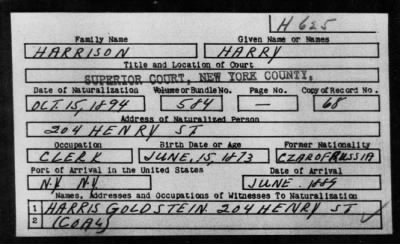 H 625
Family Name Given Name or Names
HARRISON HARRY
Title and Location of Court
SUPERIOR COURT, NEW YORK COUNTY,
Date of Naturalization Volume or Bundle No. Page No. Copy of Record No.
OCT. 15, 1894 584 — 68
Address of Naturalized Person
204 HENRY ST
Occupation Birth Date or Age Former Nationality
CLERK JUNE, 15, 1873 CZAR OF RUSSIA
Port of Arrival in the United States Date of Arrival
N.Y. N.Y. JUNE. 1885
Names, Addresses and Occupations of Witnesses To Naturalization
1 HARRIS GOLDSTEIN 204 HENRY ST
2 (COAL)